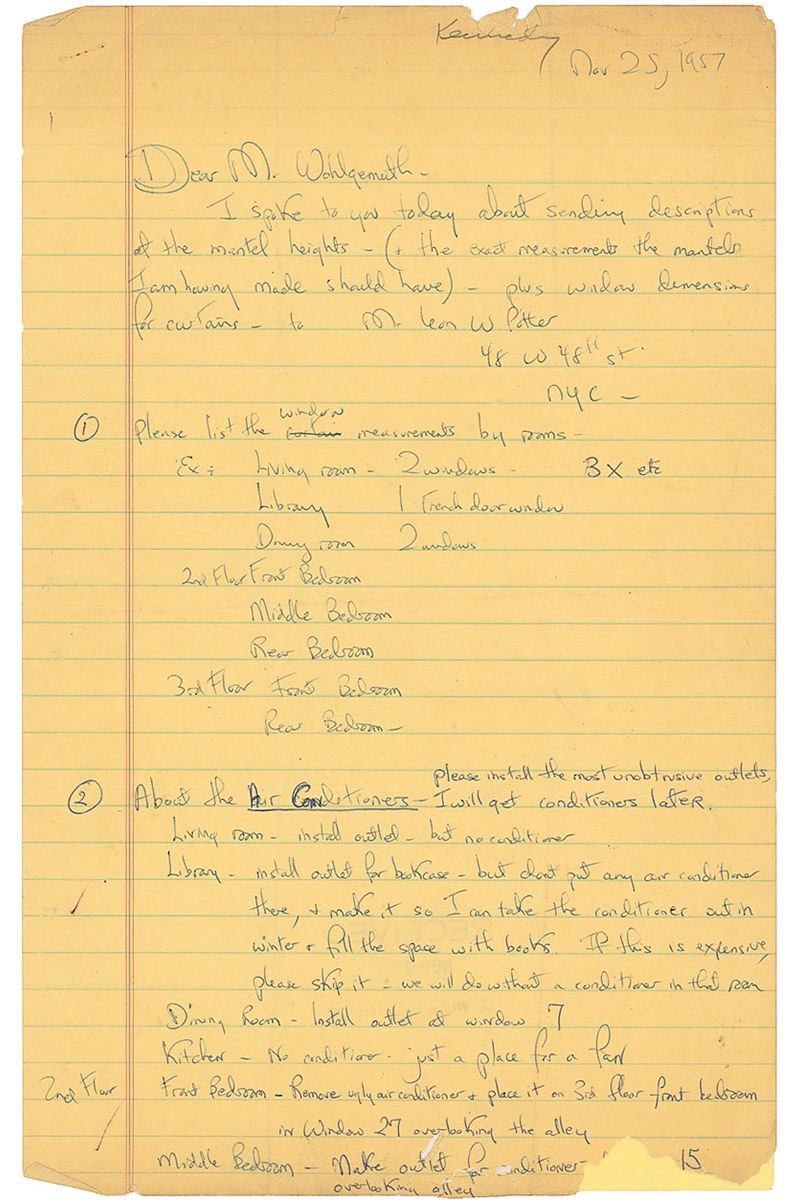 Kennedy
Nov 25, 1957
Dear Mr. Wohlgemuth -
I spoke to you today about sending descriptions
of the mantel heights - (+ the exact measurements the mantels
I am having made should have) - plus window dimensions
for curtains - to Mr. Leon W Potter
48 W 48th st.
NYC -
① please list the window curtain measurements by rooms -
Ex: Living room - 2 windows - 3 X etc
Library 1 French door window
Dining room 2 windows
2nd Floor Front Bedroom
Middle Bedroom
Rear Bedroom
3rd Floor Front Bedroom
Rear Bedroom -
please install the most unobtrusive outlets,
② About the Air Conditioners - I will get conditioners later.
Living room - install outlet - but no conditioner
Library - install outlet for bookcase - but dont put any air conditioner
there, + make it so I can take the conditioner out in
winter + fill the space with books. If this is expensive,
please skip it - we will do without a conditioner in that room
Dining Room - Install outlet at window 7
Kitchen - No conditioner - just a place for a fan
2nd Floor Front Bedroom - Remove ugly air conditioner + place it on 3rd floor front bedroom
in Window 27 overlooking the alley
Middle Bedroom - Make outlet for conditioner - 15
overlooking alley